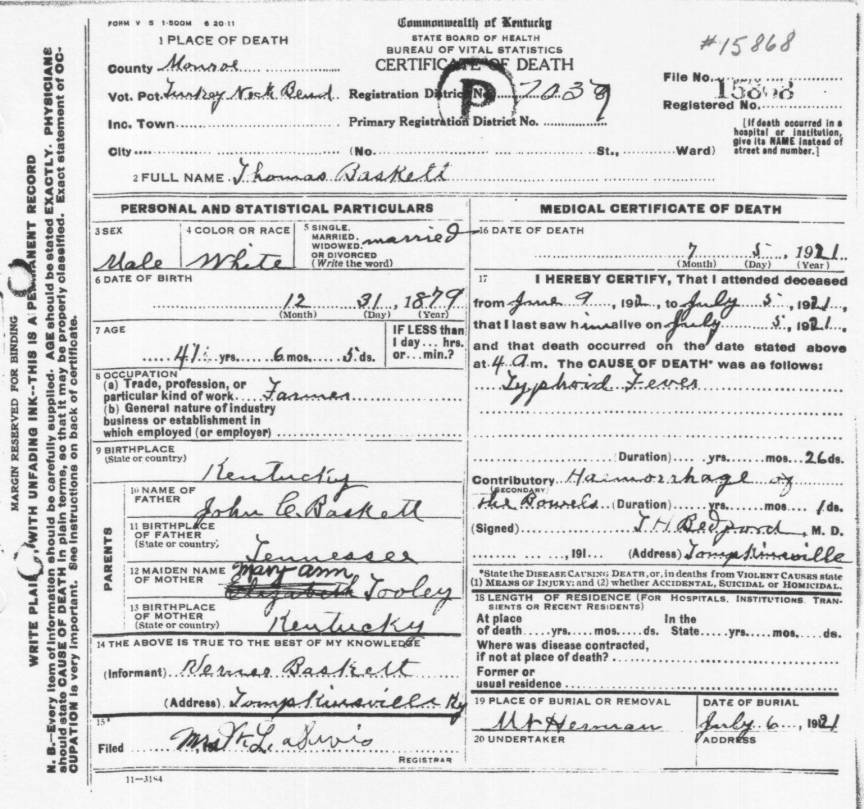 FORM V S 1-500M 6 20-11
Commonwealth of Kentucky
STATE BOARD OF HEALTH
BUREAU OF VITAL STATISTICS
CERTIFICATE OF DEATH
#15868
1 PLACE OF DEATH
County Monroe
Vot. Pct. Turkey Neck Bend
Inc. Town
City
Registration District No. 7039
P
Primary Registration District No.
(No. St., Ward)
File No. 15868
Registered No.
[If death occurred in a
hospital or institution,
give its NAME instead of
street and number.]
2 FULL NAME Thomas Baskett
PERSONAL AND STATISTICAL PARTICULARS
3 SEX
Male
4 COLOR OR RACE
White
5 SINGLE,
MARRIED,
WIDOWED,
OR DIVORCED
(Write the word)
married
6 DATE OF BIRTH
12 31, 1879
(Month) (Day) (Year)
7 AGE
41 yrs. 6 mos. 5 ds.
IF LESS than
1 day... hrs.
or... min.?
8 OCCUPATION
(a) Trade, profession, or
particular kind of work Farmer
(b) General nature of industry
business or establishment in
which employed (or employer)
9 BIRTHPLACE
(State or country)
Kentucky
PARENTS
10 NAME OF
FATHER
John C. Baskett
11 BIRTHPLACE
OF FATHER
(State or country)
Tennessee
12 MAIDEN NAME
OF MOTHER
Mary Ann
Elizabeth Tooley
13 BIRTHPLACE
OF MOTHER
(State or country)
Kentucky
14 THE ABOVE IS TRUE TO THE BEST OF MY KNOWLEDGE
(Informant) Baskett
(Address) Tompkinsville Ky
15
Filed Mrs
REGISTRAR
11-3184
MEDICAL CERTIFICATE OF DEATH
16 DATE OF DEATH
7 5, 1921
(Month) (Day) (Year)
17 I HEREBY CERTIFY, That I attended deceased
from June 9, 192 , to July 5, 1921,
that I last saw him alive on July 5, 1921,
and that death occurred on the date stated above
at 4 a m. The CAUSE OF DEATH* was as follows:
Typhoid Fever
(Duration) yrs. mos. 26 ds.
Contributory Haimorrhage of
(SECONDARY)
the Bowels (Duration) yrs. mos. 1 ds.
(Signed) T. H. Bedford, M. D.
, 191 (Address) Tompkinsville
*State the DISEASE CAUSING DEATH, or, in deaths from VIOLENT CAUSES state
(1) MEANS OF INJURY; and (2) whether ACCIDENTAL, SUICIDAL or HOMICIDAL.
18 LENGTH OF RESIDENCE (FOR HOSPITALS, INSTITUTIONS, TRAN-
SIENTS OR RECENT RESIDENTS)
At place In the
of death yrs. mos. ds. State yrs. mos. ds.
Where was disease contracted,
if not at place of death?
Former or
usual residence
19 PLACE OF BURIAL OR REMOVAL
Mt Herman
DATE OF BURIAL
July 6, 1921
20 UNDERTAKER
ADDRESS
MARGIN RESERVED FOR BINDING
WRITE PLAINLY, WITH UNFADING INK--THIS IS A PERMANENT RECORD
N. B.--Every item of information should be carefully supplied. AGE should be stated EXACTLY. PHYSICIANS
should state CAUSE OF DEATH in plain terms, so that it may be properly classified. Exact statement of OC-
CUPATION is very important. See instructions on back of certificate.